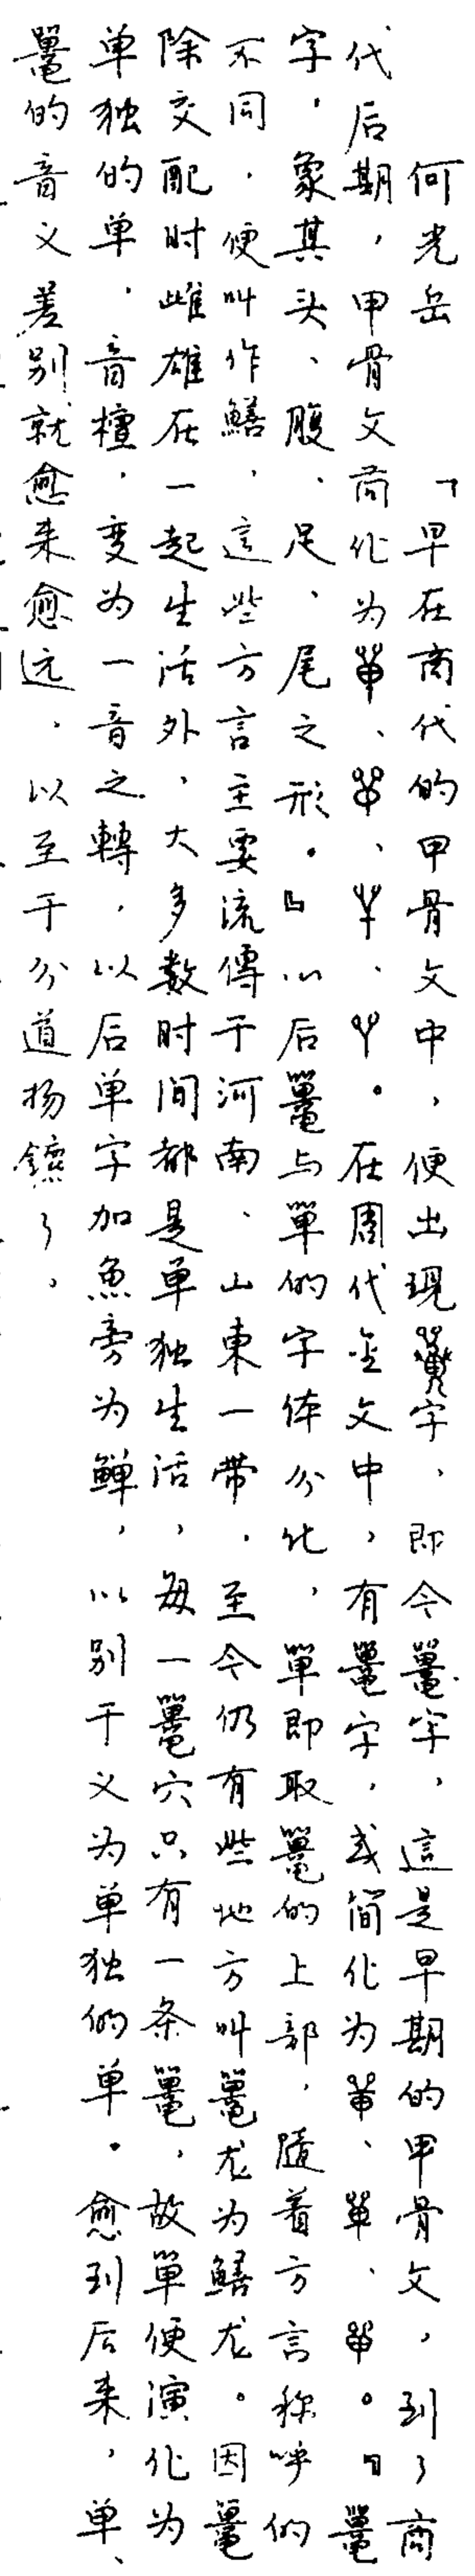 何光岳　「早在商代的甲骨文中，便出现字，即今鼍字，這是早期的甲骨文，到了商
代后期，甲骨文简化为、、、。在周代金文中，有鼍字，或简化为、、。『鼍
字，象其头、腹、足、尾之形。』以后鼍与單的字体分化，單即取鼍的上部，隨着方言称呼的
不同，便叫作鱔，這些方言主要流傳于河南、山東一带，至今仍有些地方叫鼍尨为鱔尨。因鼍
除交配时雌雄在一起生活外，大多数时间都是单独生活，每一鼍穴只有一条鼍，故單便演化为
单独的单，音檀，变为一音之轉，以后单字加魚旁为鱓，以别于义为单独的单。愈到后来，单、
鼍的音义差别就愈来愈远，以至于分道扬鑣了，